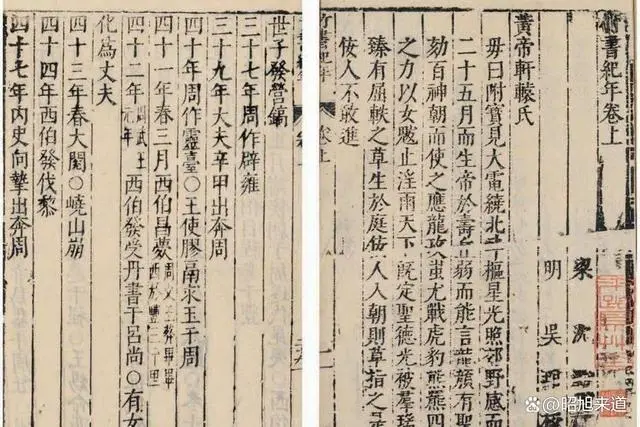 竹書紀年卷上
梁 沈
明 吳
黃帝軒轅氏
母曰附寶見大電繞北斗樞星光照郊野感而
二十五月而生帝於壽丘弱而能言龍顏有聖
劾百神朝而使之應龍攻蚩尤戰虎豹熊羆四
之力以女魃止淫雨天下既定聖德光被羣
臻有屈軼之草生於庭佞人入朝則草指之是
佞人不敢進
卷上
世子發營鎬
三十七年周作辟雍
三十九年大夫辛甲出奔周
四十年周作靈臺○王使膠鬲求玉于周
四十一年春三月西伯昌薨周文王葬畢畢西於豐三十里
四十二年周武王元年西伯發受丹書于呂尚○有女
化為丈夫
四十三年春大閱○嶢山崩
四十四年西伯發伐黎
四十七年內史向摯出奔周
昭旭来道